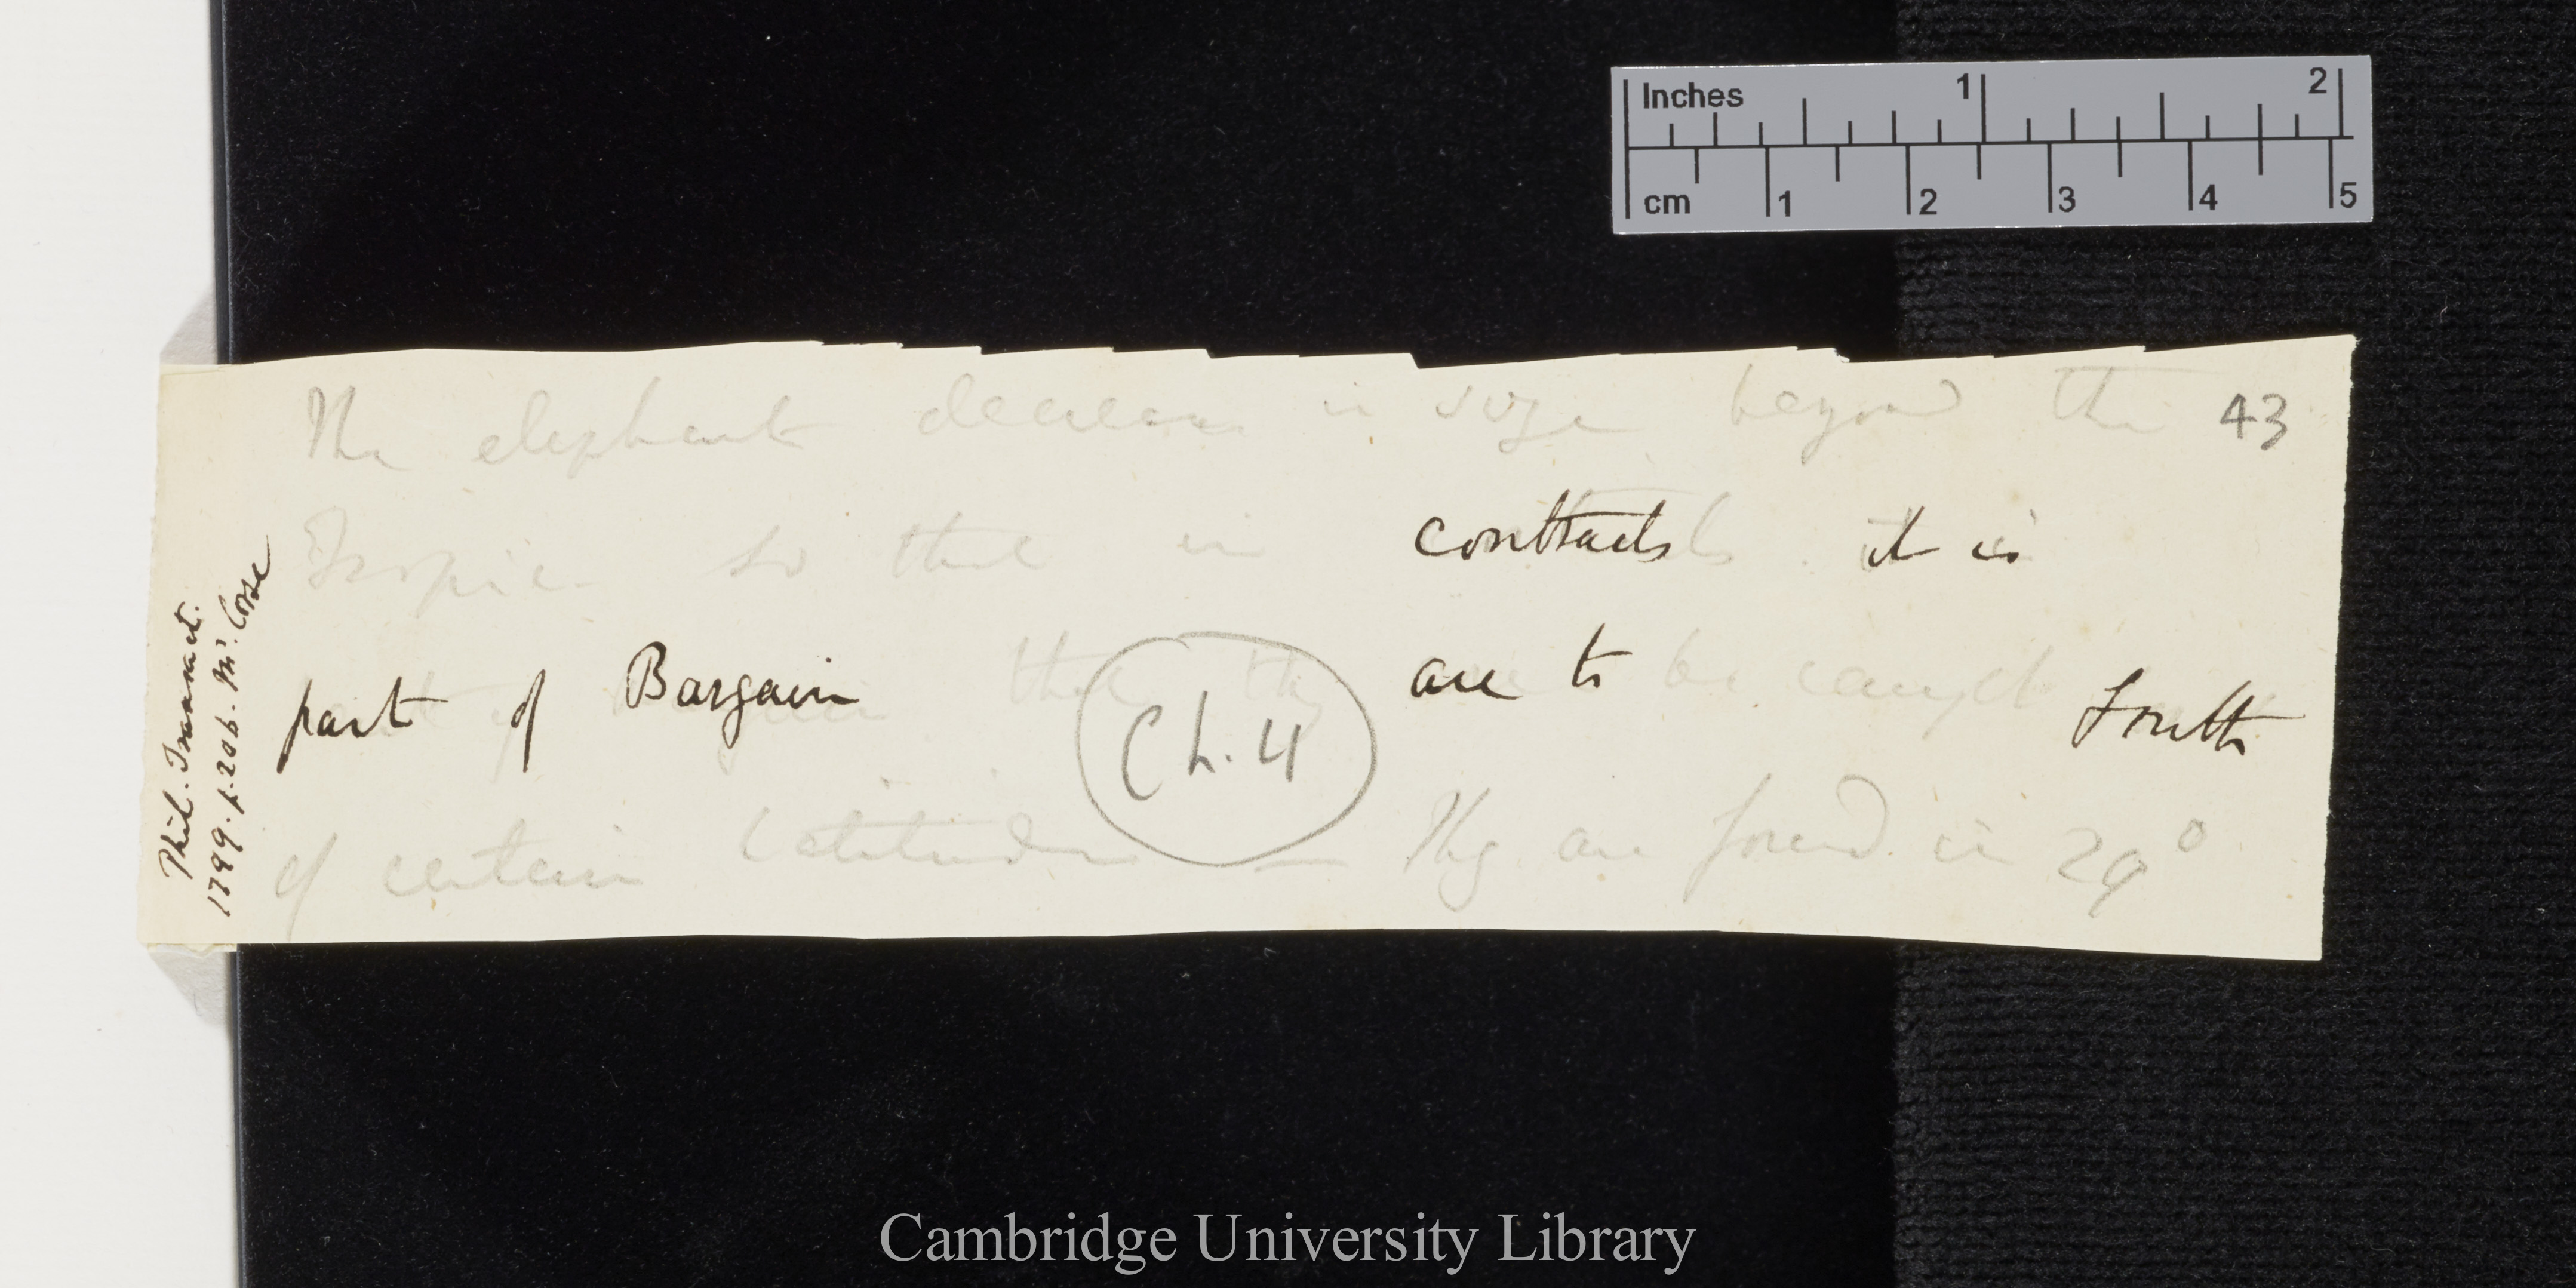 Inches 1 2
cm 1 2 3 4 5
43
The elephant decreases in size beyond the
Tropic so that in contracts it is
part of Bargain that they are to be caught South
of certain latitude — They are found in 29°
Ch. 4
Phil. Transact.
1799. p. 206. Mr. Corse
Cambridge University Library